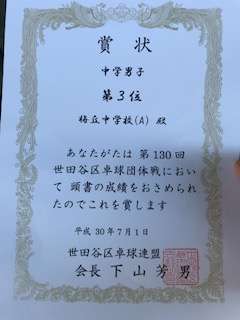 賞状
中学男子
第3位
梅丘中学校(A) 殿
あなたがたは 第130回
世田谷区卓球団体戦におい
て 頭書の成績をおさめられ
たのでこれを賞します
平成 30年7月1日
世田谷区卓球連盟
会長 下山芳男